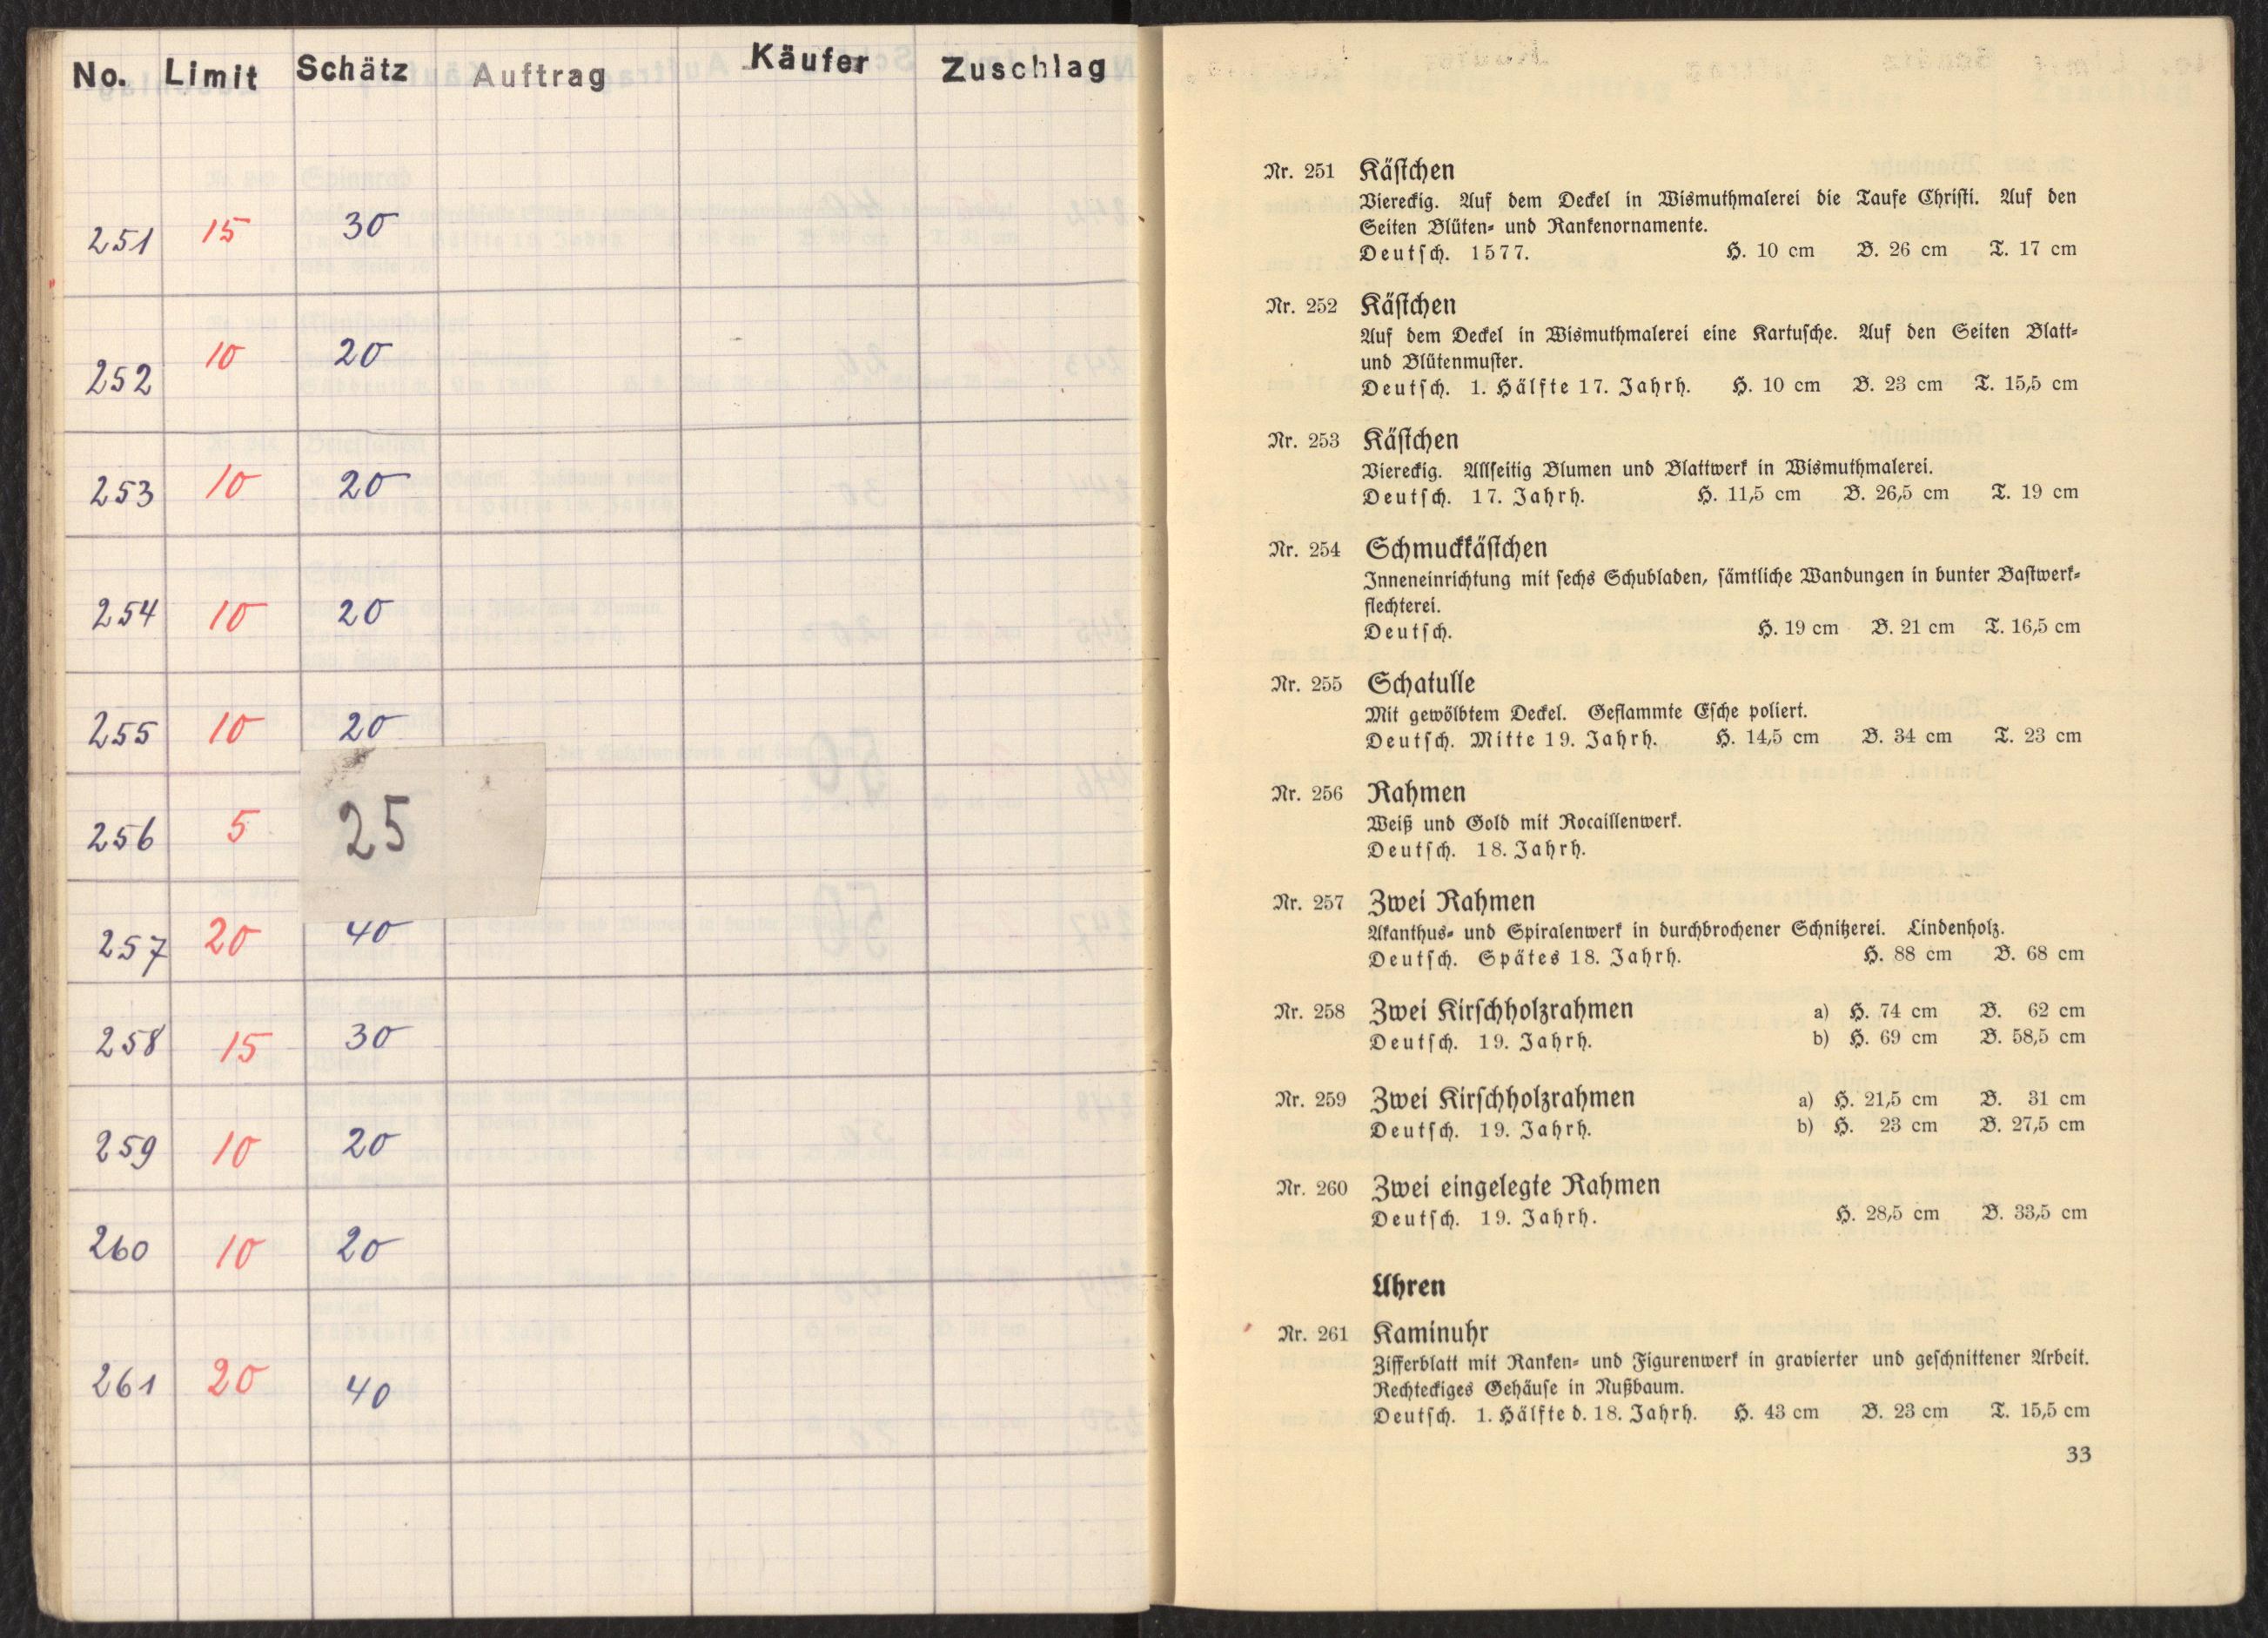 No. Limit Schätz Auftrag Käufer Zuschlag
251 15 30
252 10 20
253 10 20
254 10 20
255 10 20
256 5 25
257 20 40
258 15 30
259 10 20
260 10 20
261 20 40
Nr. 251 Käſtchen
Viereckig. Auf dem Deckel in Wismuthmalerei die Taufe Chriſti. Auf den
Seiten Blüten- und Rankenornamente.
Deutſch. 1577. H. 10 cm B. 26 cm T. 17 cm
Nr. 252 Käſtchen
Auf dem Deckel in Wismuthmalerei eine Kartuſche. Auf den Seiten Blatt-
und Blütenmuſter.
Deutſch. 1. Hälfte 17. Jahrh. H. 10 cm B. 23 cm T. 15,5 cm
Nr. 253 Käſtchen
Viereckig. Allſeitig Blumen und Blattwerk in Wismuthmalerei.
Deutſch. 17. Jahrh. H. 11,5 cm B. 26,5 cm T. 19 cm
Nr. 254 Schmuckkäſtchen
Inneneinrichtung mit ſechs Schubladen, ſämtliche Wandungen in bunter Baſtwerk-
flechterei.
Deutſch. H. 19 cm B. 21 cm T. 16,5 cm
Nr. 255 Schatulle
Mit gewölbtem Deckel. Geflammte Eſche poliert.
Deutſch. Mitte 19. Jahrh. H. 14,5 cm B. 34 cm T. 23 cm
Nr. 256 Rahmen
Weiß und Gold mit Rocaillenwerk.
Deutſch. 18. Jahrh.
Nr. 257 Zwei Rahmen
Akanthus- und Spiralenwerk in durchbrochener Schnitzerei. Lindenholz.
Deutſch. Spätes 18. Jahrh. H. 88 cm B. 68 cm
Nr. 258 Zwei Kirſchholzrahmen a) H. 74 cm B. 62 cm
Deutſch. 19. Jahrh. b) H. 69 cm B. 58,5 cm
Nr. 259 Zwei Kirſchholzrahmen a) H. 21,5 cm B. 31 cm
Deutſch. 19. Jahrh. b) H. 23 cm B. 27,5 cm
Nr. 260 Zwei eingelegte Rahmen
Deutſch. 19. Jahrh. H. 28,5 cm B. 33,5 cm
Uhren
Nr. 261 Kaminuhr
Zifferblatt mit Ranken- und Figurenwerk in gravierter und geſchnittener Arbeit.
Rechteckiges Gehäuſe in Nußbaum.
Deutſch. 1. Hälfte d. 18. Jahrh. H. 43 cm B. 23 cm T. 15,5 cm
33